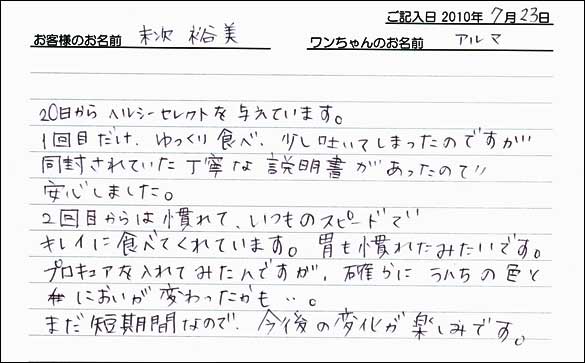 ご記入日 2010年 7月 23日
お客様のお名前 末次 裕美 ワンちゃんのお名前 アルマ
20日から ヘルシーセレクトを 与えています。
1回目だけ、ゆっくり食べ、少し吐いてしまったのですが
同封されていた丁寧な 説明書があったので
安心しました。
2回目からは慣れて、いつものスピードで
キレイに食べてくれています。胃も慣れたみたいです。
プロキュアを入れてみたんですが、確かに うんちの色と
においが変わったかも…。
まだ短期間なので、今後の変化が楽しみです。